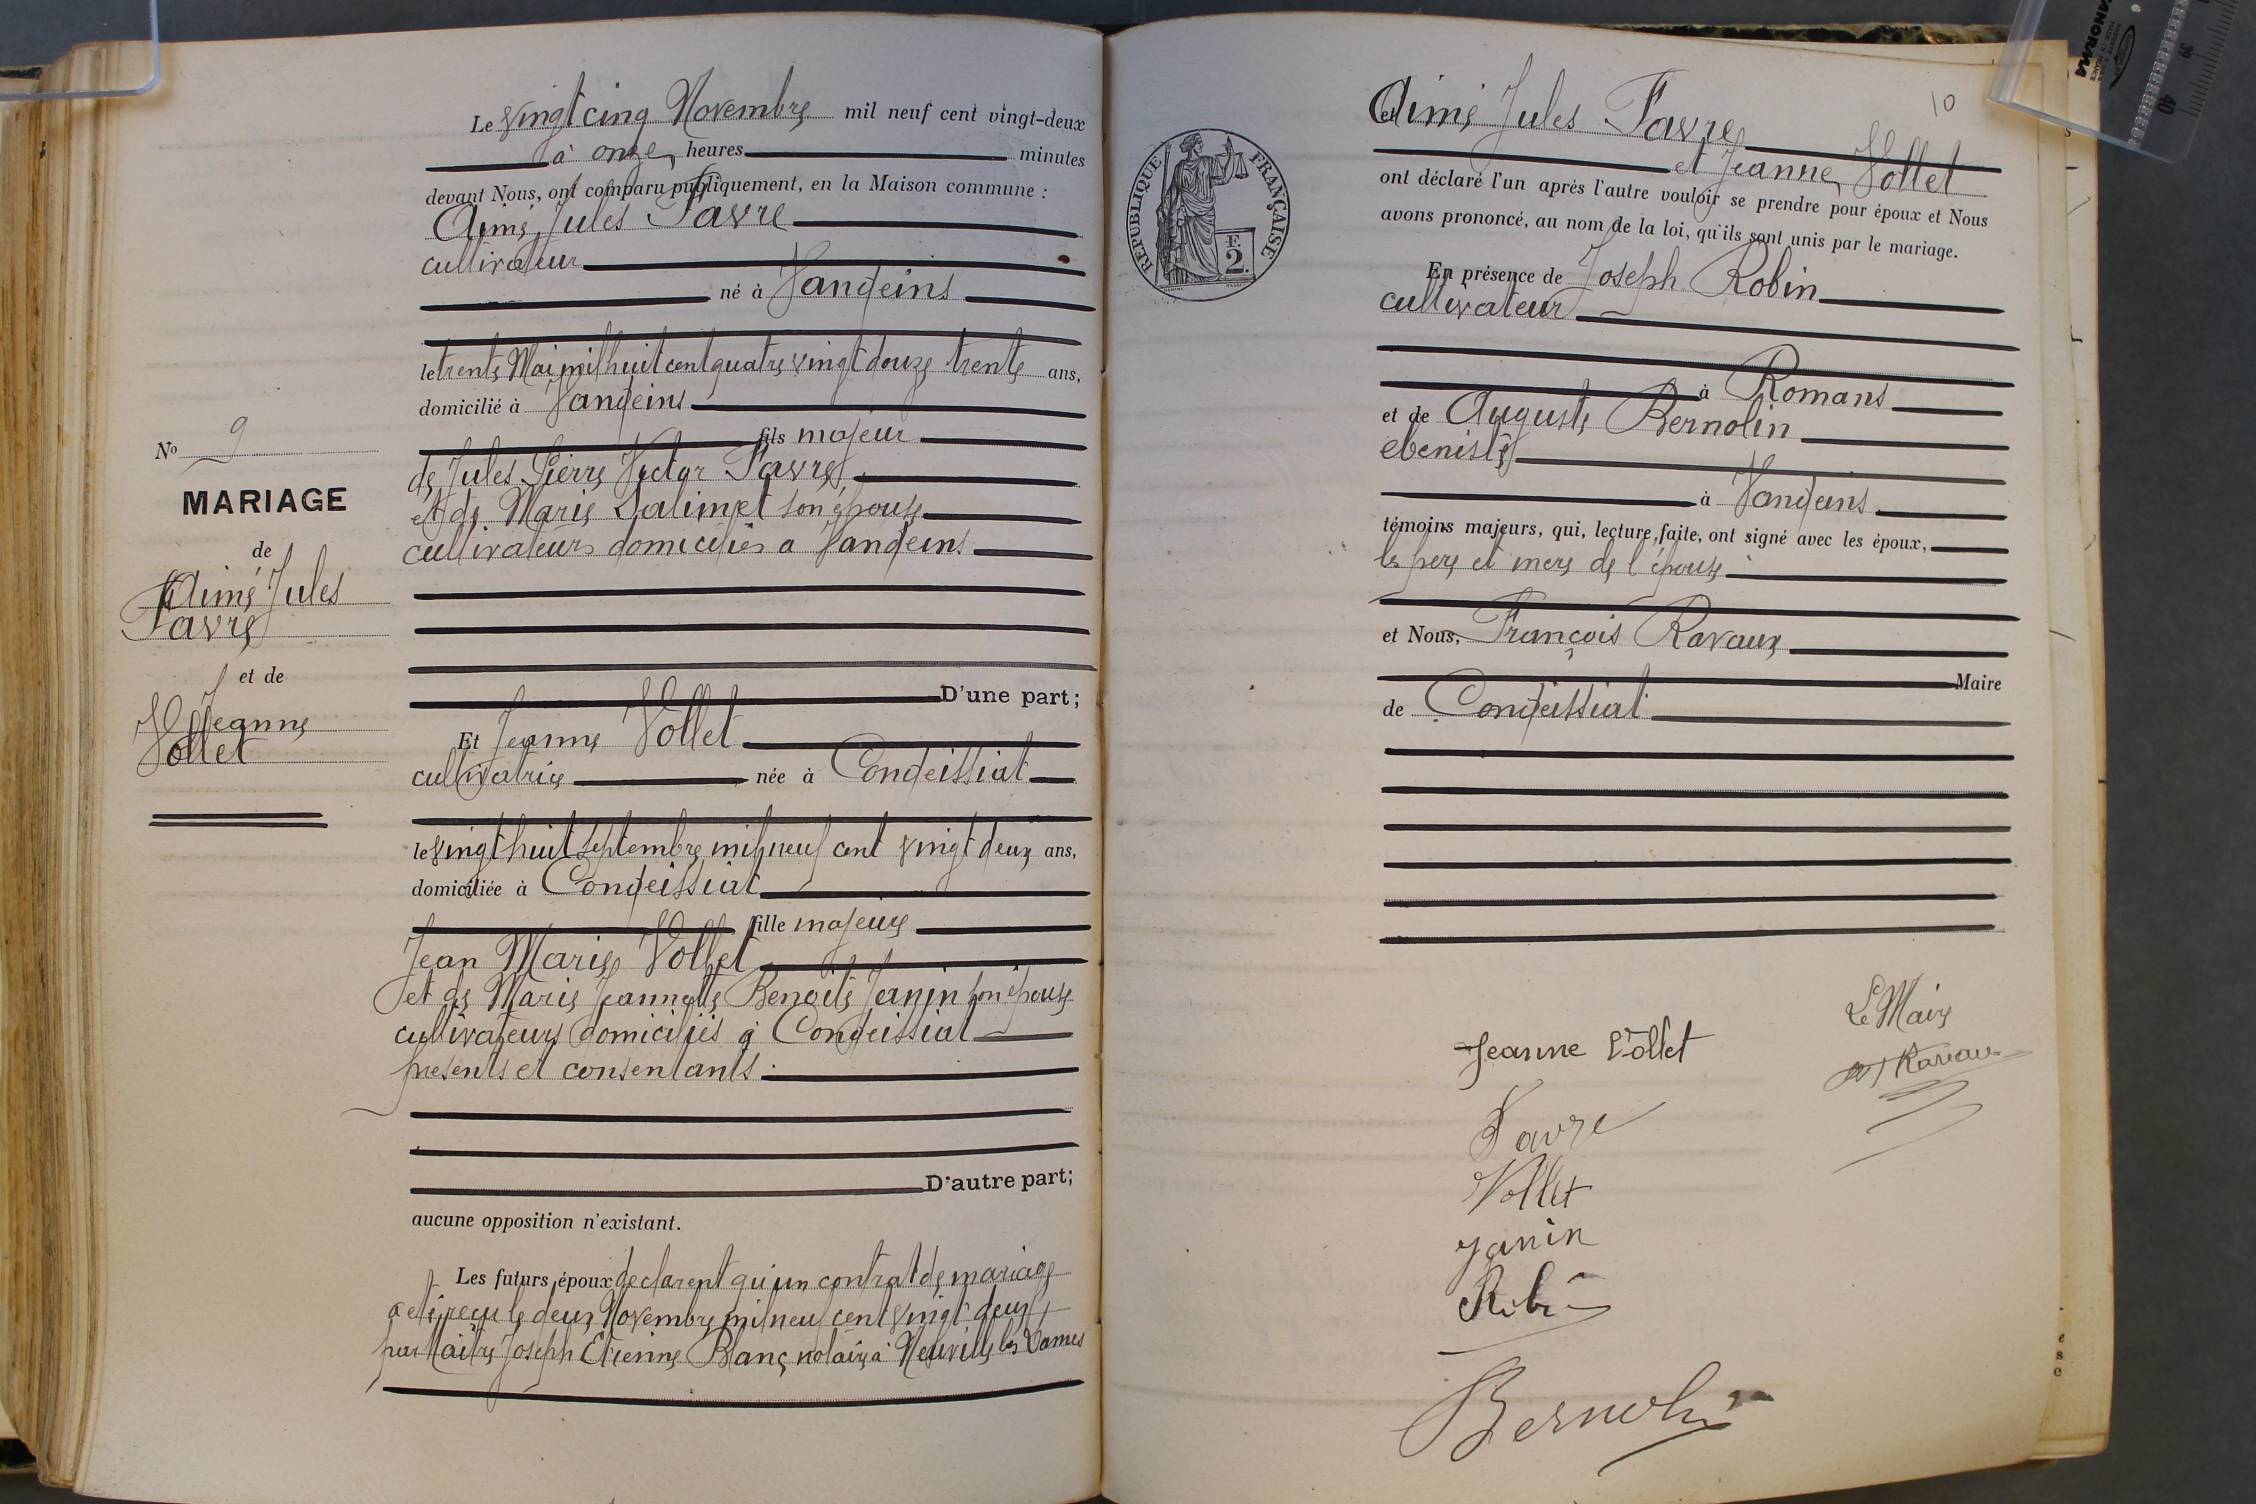 Le vingt cinq Novembre mil neuf cent vingt-deux
à onze heures minutes
devant Nous, ont comparu publiquement, en la Maison commune :
Aimé Jules Favre
cultivateur
né à Vandeins
le trente Mai mil huit cent quatre vingt douze trente ans,
domicilié à Vandeins
fils majeur
de Jules Pierre Victor Favre
et de Marie Salimpet son épouse
cultivateurs domiciliés à Vandeins
D'une part;
Et Jeanne Vollet
cultivatrice née à Condeissiat
le vingt huit Septembre mil neuf cent vingt deux ans,
domiciliée à Condeissiat
fille majeure
Jean Marie Vollet
et de Marie Jeannette Benoite Janin son épouse
cultivateurs domiciliés à Condeissiat
présents et consentants.
D'autre part;
aucune opposition n'existant.
Les futurs époux declarent qu'un contrat de mariage
a eté reçu le deux Novembre mil neuf cent vingt deux
par Maître Joseph Etienne Blanc notaire à Neuville les Dames
No 9
MARIAGE
de
Aimé Jules
Favre
et de
Jeanne
Vollet
10
RÉPUBLIQUE FRANÇAISE
F.
2.
Aimé Jules Favre
et Jeanne Vollet
ont déclaré l'un après l'autre vouloir se prendre pour époux et Nous
avons prononcé, au nom de la loi, qu'ils sont unis par le mariage.
En présence de Joseph Robin
cultivateur
à Romans
et de Auguste Bernolin
ebeniste
à Vandeins
témoins majeurs, qui, lecture faite, ont signé avec les époux,
les pere et mere de l'épouse
et Nous, François Ravaux
Maire
de Condeissiat
Le Maire
Ravaux
Jeanne Vollet
Favre
Vollet
Janin
Robin
Bernolin